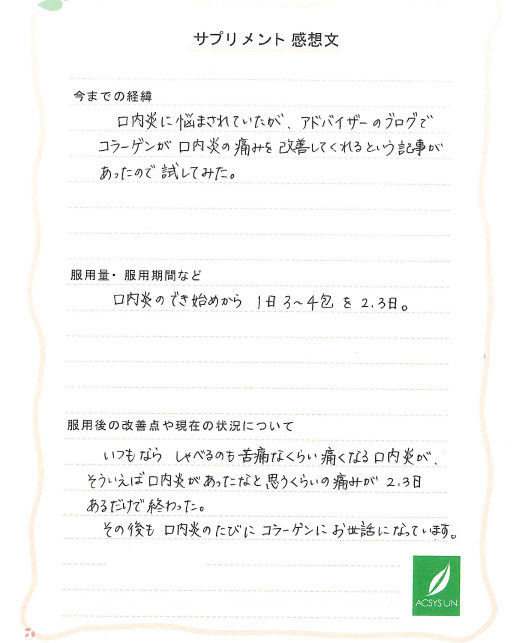 サプリメント 感想文
今までの経緯
口内炎に悩まされていたが、アドバイザーのブログで
コラーゲンが口内炎の痛みを改善してくれるという記事が
あったので試してみた。
服用量・服用期間など
口内炎のでき始めから 1日3～4包を2.3日。
服用後の改善点や現在の状況について
いつもなら しゃべるのも苦痛なくらい痛くなる口内炎が、
そういえば口内炎があったなと思うくらいの痛みが2.3日
あるだけで終わった。
その後も口内炎のたびにコラーゲンにお世話になっています。
ACSYSUN